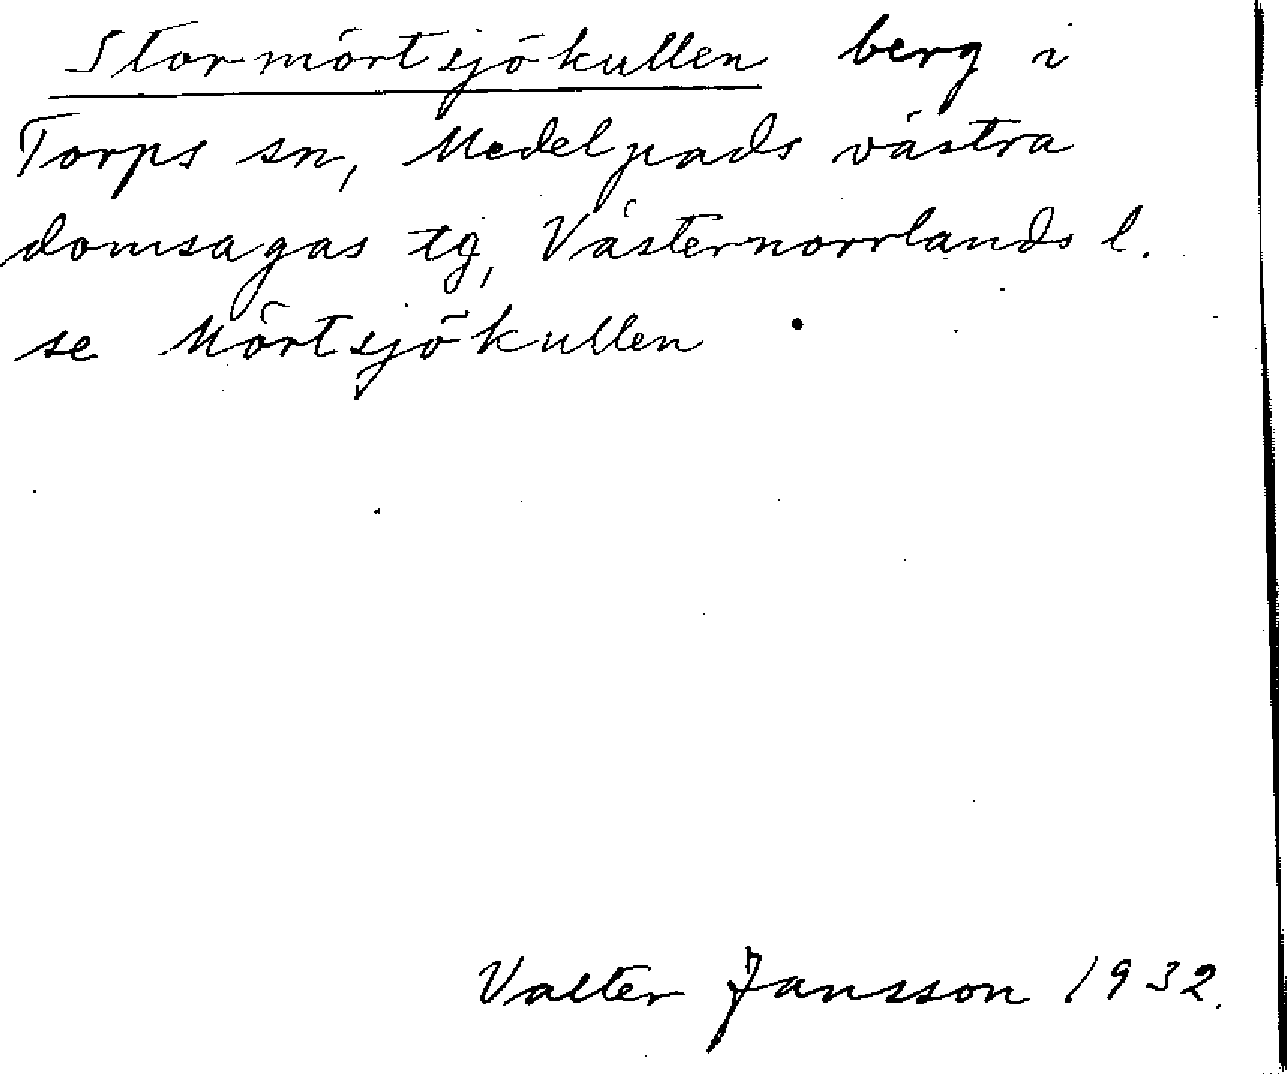 Stormörtsjökullen berg i
Torps sn, Medelpads västra
domsagas tg, Västernorrlands l.
se Mörtsjökullen
Valter Jansson 1932.